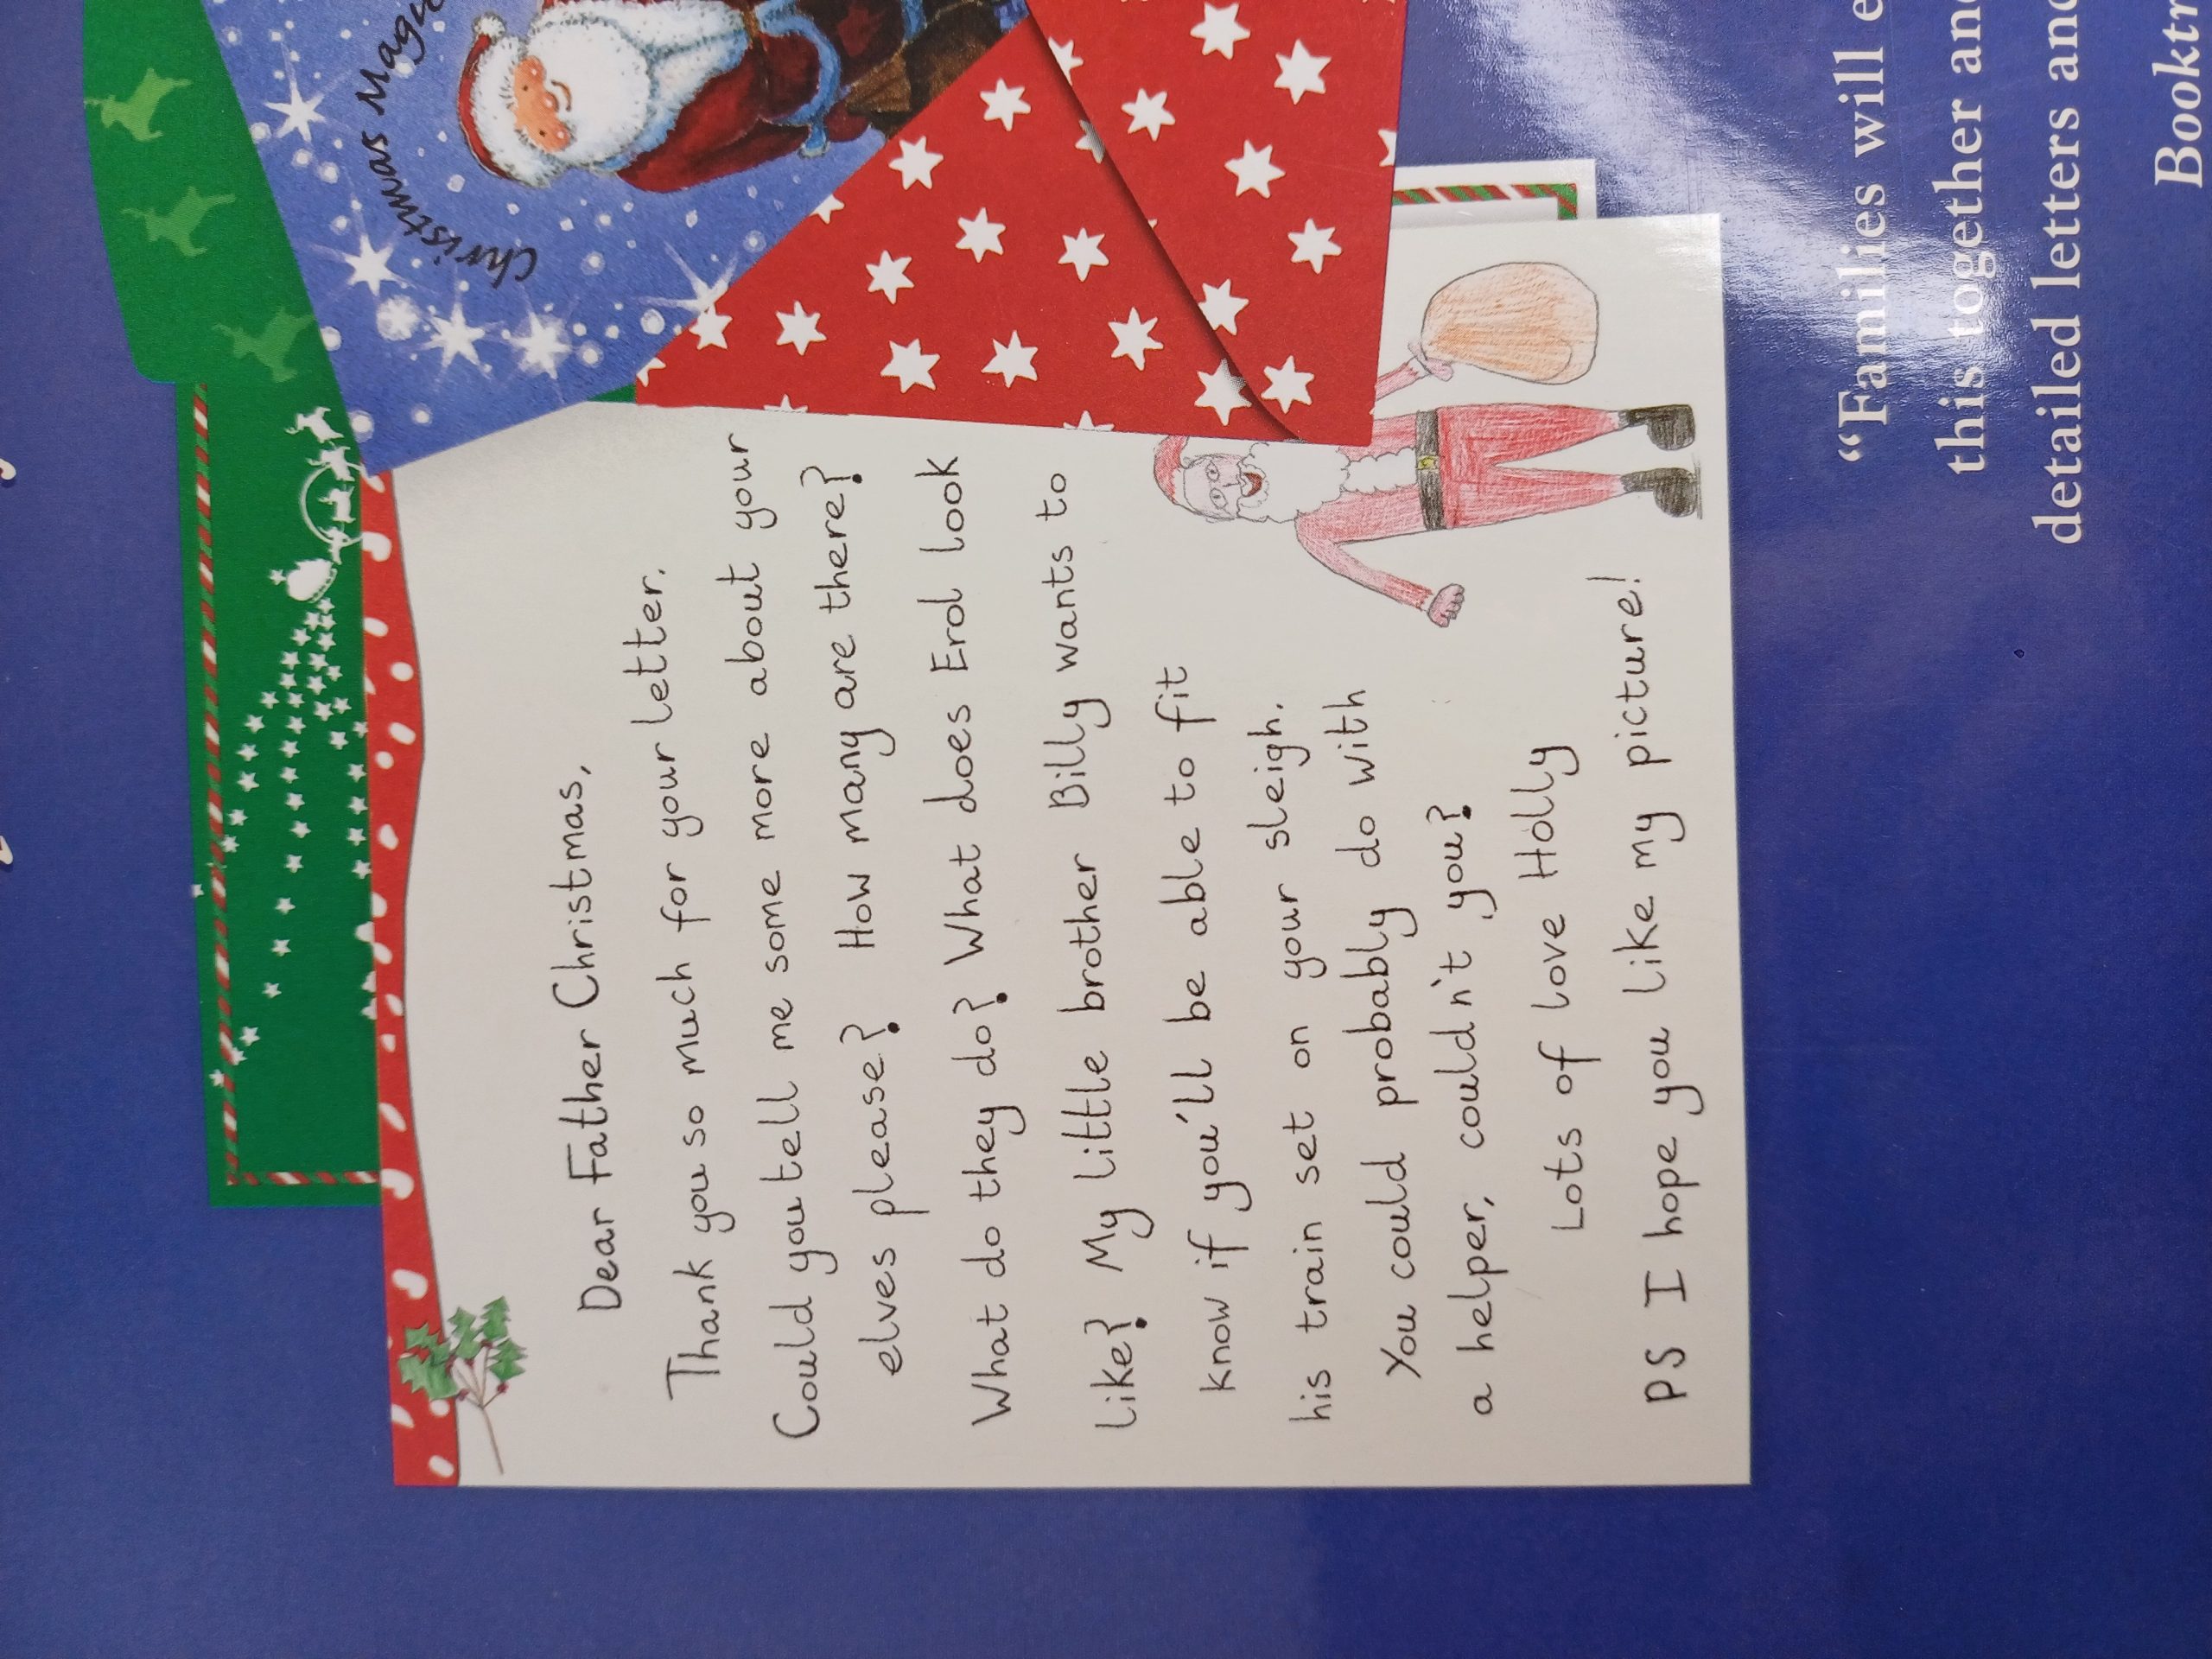 Christmas
Dear Father Christmas,
Thank you so much for your letter.
Could you tell me some more about your
elves please? How many are there?
What do they do? What does Erol look
like? My little brother Billy wants to
know if you'll be able to fit
his train set on your sleigh.
You could probably do with
a helper, couldn't you?
Lots of love Holly
PS I hope you like my picture!
"Families will
this together
detailed letters